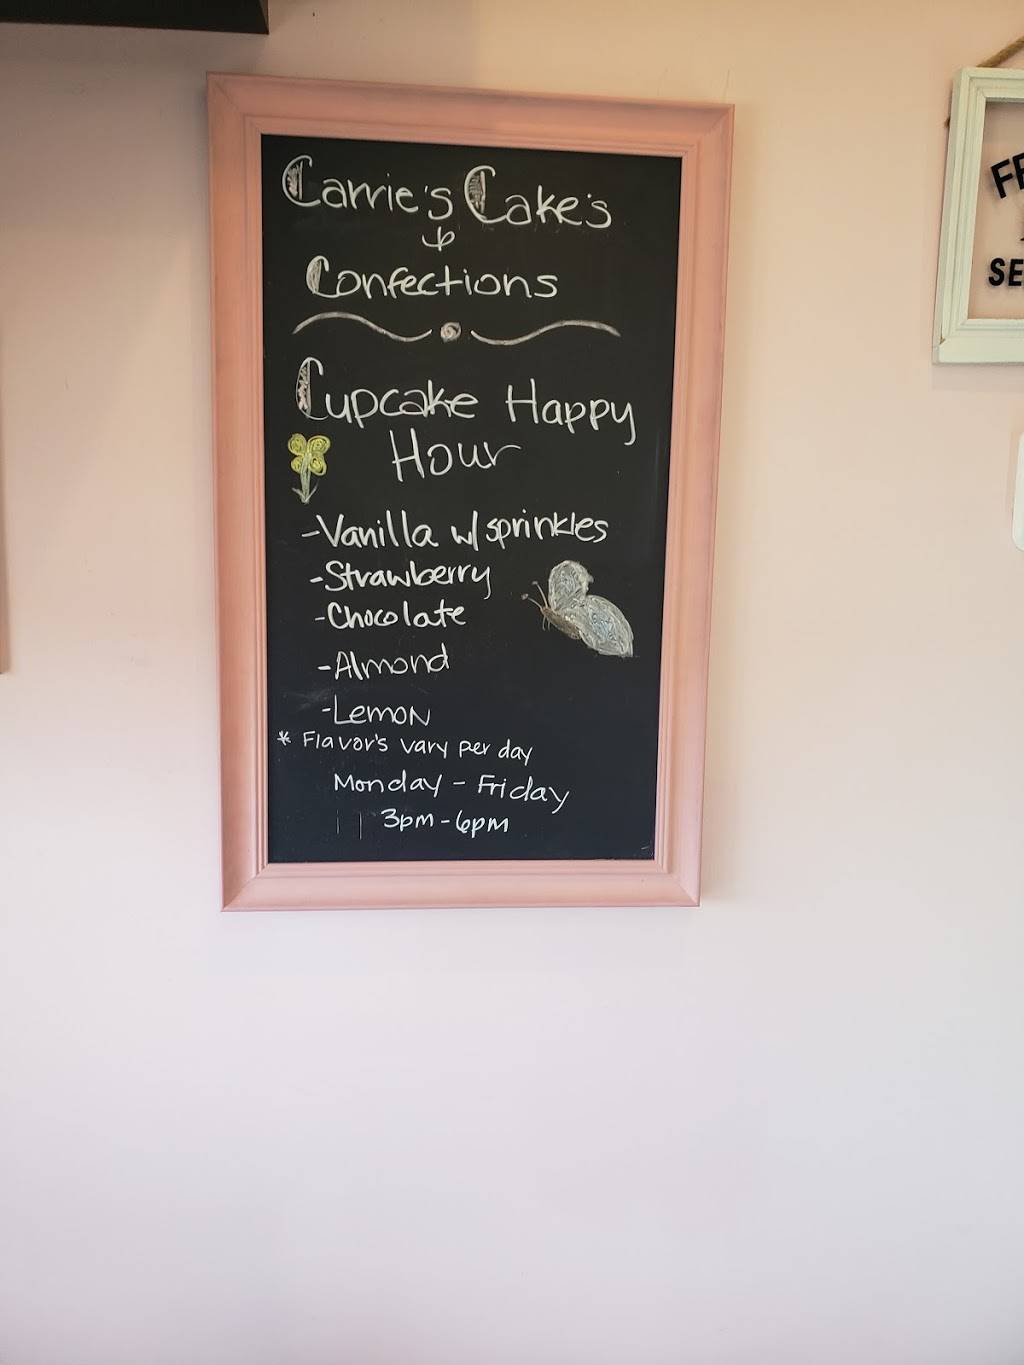 Carrie's Cake's
&
Confections
Cupcake Happy
Hour
-Vanilla w/sprinkles
-Strawberry
-Chocolate
-Almond
-Lemon
* Flavor's vary per day
Monday - Friday
3pm - 6pm
FR
SE